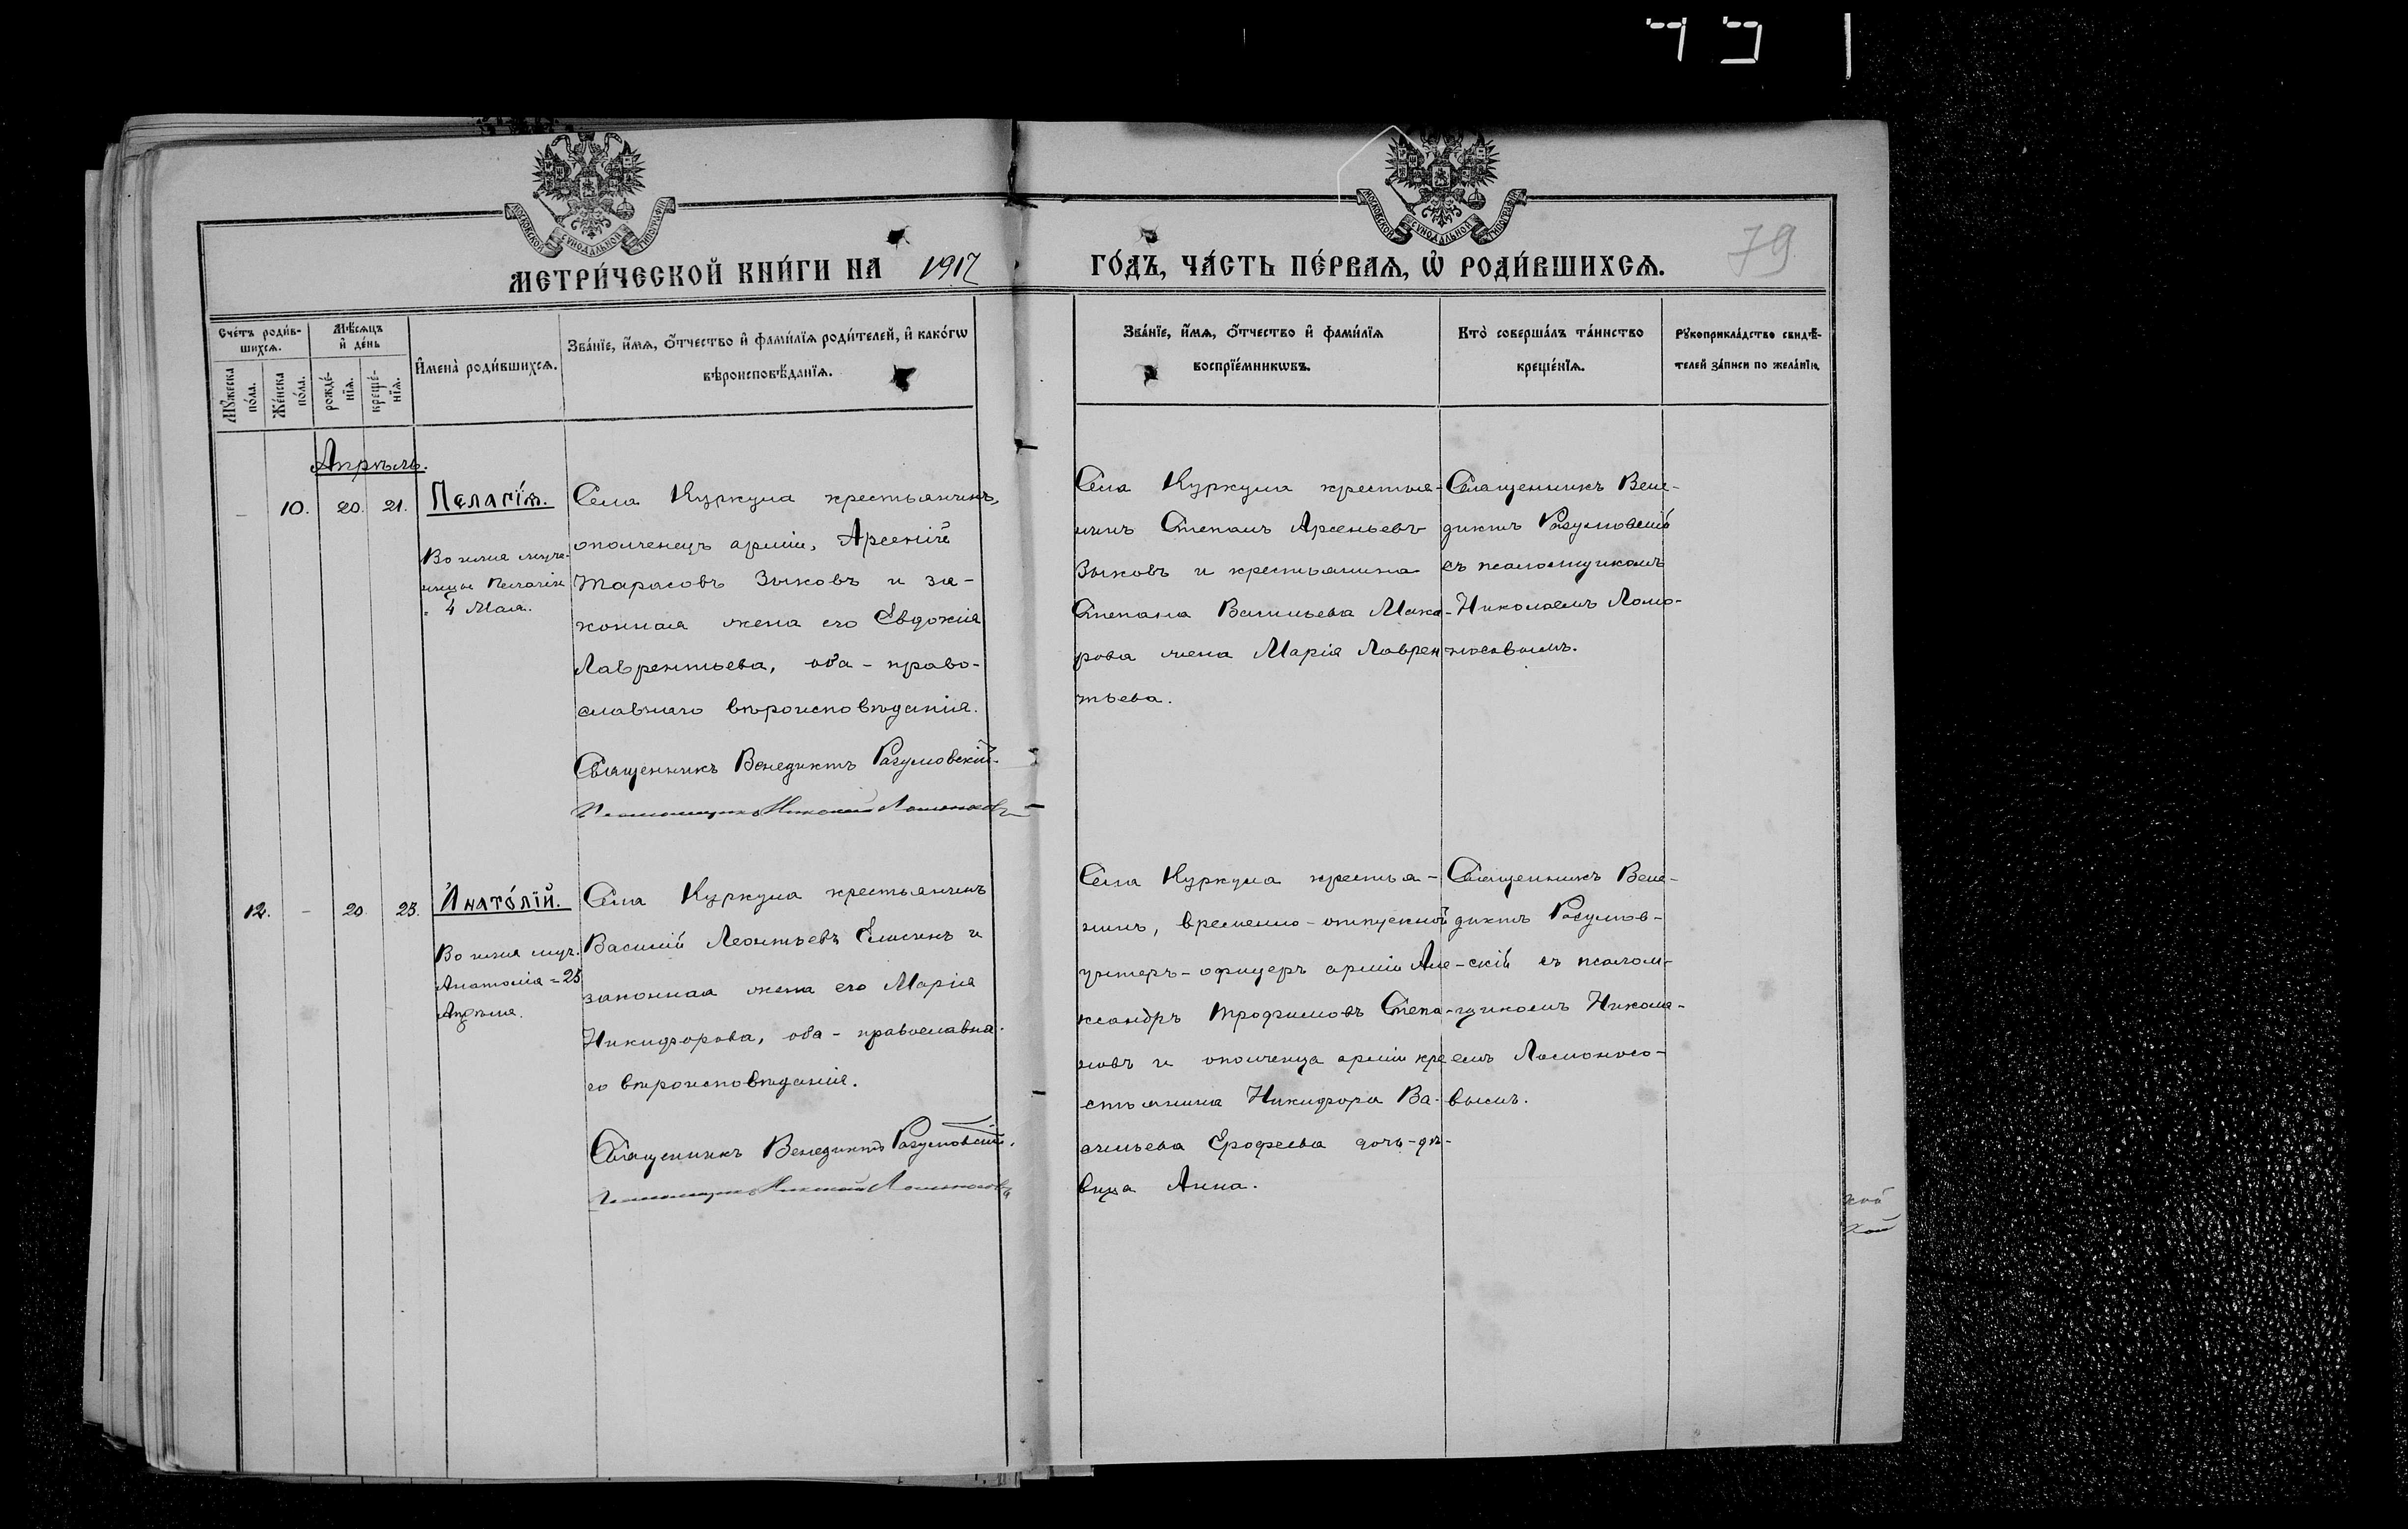 МОСКОВСКОЙ СѴНОДАЛЬНОЙ ТИПОГРАФІИ
МОСКОВСКОЙ СѴНОДАЛЬНОЙ ТИПОГРАФІИ
МЕТРИ́ЧЕСКОЙ КНИ́ГИ НА 1917
ГО́ДЪ, ЧА́СТЬ ПЕ́РВАѦ, Ѽ РОДИ́ВШИХСѦ.
79
Сче́тъ роди́в-
шихсѧ.
Мꙋ́жеска
по́ла.
Же́нска
по́ла.
Мѣ́сѧцъ
и҆ де́нь
рожде́-
нїѧ.
креще́-
нїѧ.
И҆мена̀ роди́вшихсѧ.
Зва́нїе, и҆́мѧ, ѻ҆́тчество и҆ фами́лїѧ роди́телей, и҆ како́гѡ
вѣроисповѣ́данїѧ.
Зва́нїе, и҆́мѧ, ѻ҆́тчество и҆ фами́лїѧ
воспрїе́мникѡвъ.
Кто̀ соверша́лъ та́инство
креще́нїѧ.
Рꙋкоприкла́дство свидѣ́-
телей за́писи по жела́нїю.
Апрѣль.
– 10. 20. 21.
Пелагі́ѧ.
Во имя муче-
ницы Пелагіи
4 Мая.
Села Куркула крестьянинъ,
ополченецъ арміи, Арсеній
Тарасовъ Зыковъ и за-
конная жена его Евдокія
Лаврентьева, оба - право-
славнаго вѣроисповѣданія.
Священникъ Венедиктъ Разумовскій.
Псаломщикъ Николай Ломоносовъ
Села Куркула крестья-
нинъ Степанъ Арсеньевъ
Зыковъ и крестьянина
Степана Васильева Мака-
рова жена Марія Лаврен
тьева.
Священникъ Вене-
диктъ Разумовскій
съ псаломщикомъ
Николаемъ Ломо-
носовымъ.
12. – 20. 23.
Анато́лїй.
Во имя муч.
Анатолія = 23
Апрѣля.
Села Куркула крестьянинъ
Василій Леонтьевъ Елисинъ и
законная жена его Марія
Никифорова, оба - православна-
го вѣроисповѣданія.
Священникъ Венедиктъ Разумовскій.
Псаломщикъ Николай Ломоносовъ
Села Куркула крестья-
нинъ, временно-отпускной
унтеръ-офицеръ арміи Але-
ксандръ Трофимовъ Степа-
новъ и ополченца арміи кре
стьянина Никифора Ва-
сильева Ерофеева дочь-дѣ-
вица Анна.
Священникъ Вене-
диктъ Разумов-
скій съ псалом-
щикомъ Никола-
емъ Ломоносо-
вымъ.